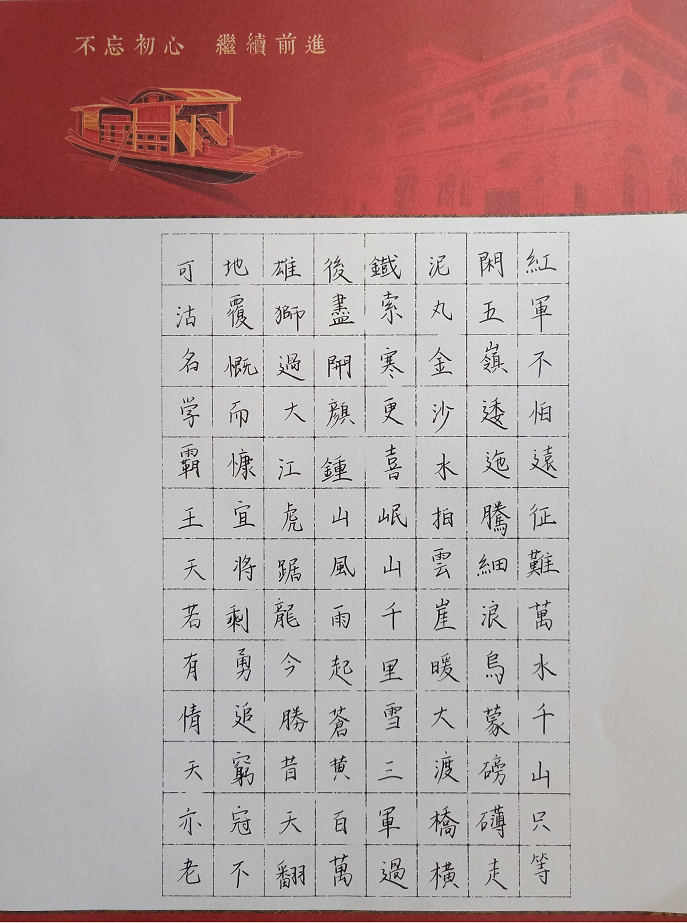 不忘初心 繼續前進
紅軍不怕遠征難萬水千山只等
閑五嶺逶迤騰細浪烏蒙磅礴走
泥丸金沙水拍雲崖暖大渡橋橫
鐵索寒更喜岷山千里雪三軍過
後盡開顏鍾山風雨起蒼黄百萬
雄獅過大江虎踞龍今勝昔天翻
地覆慨而慷宜将剩勇追窮冠不
可沽名学霸王天若有情天亦老